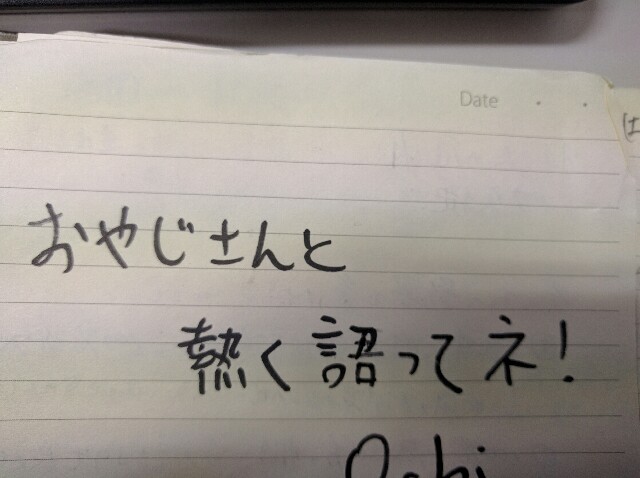 Date
おやじさんと
熱く語ってネ!